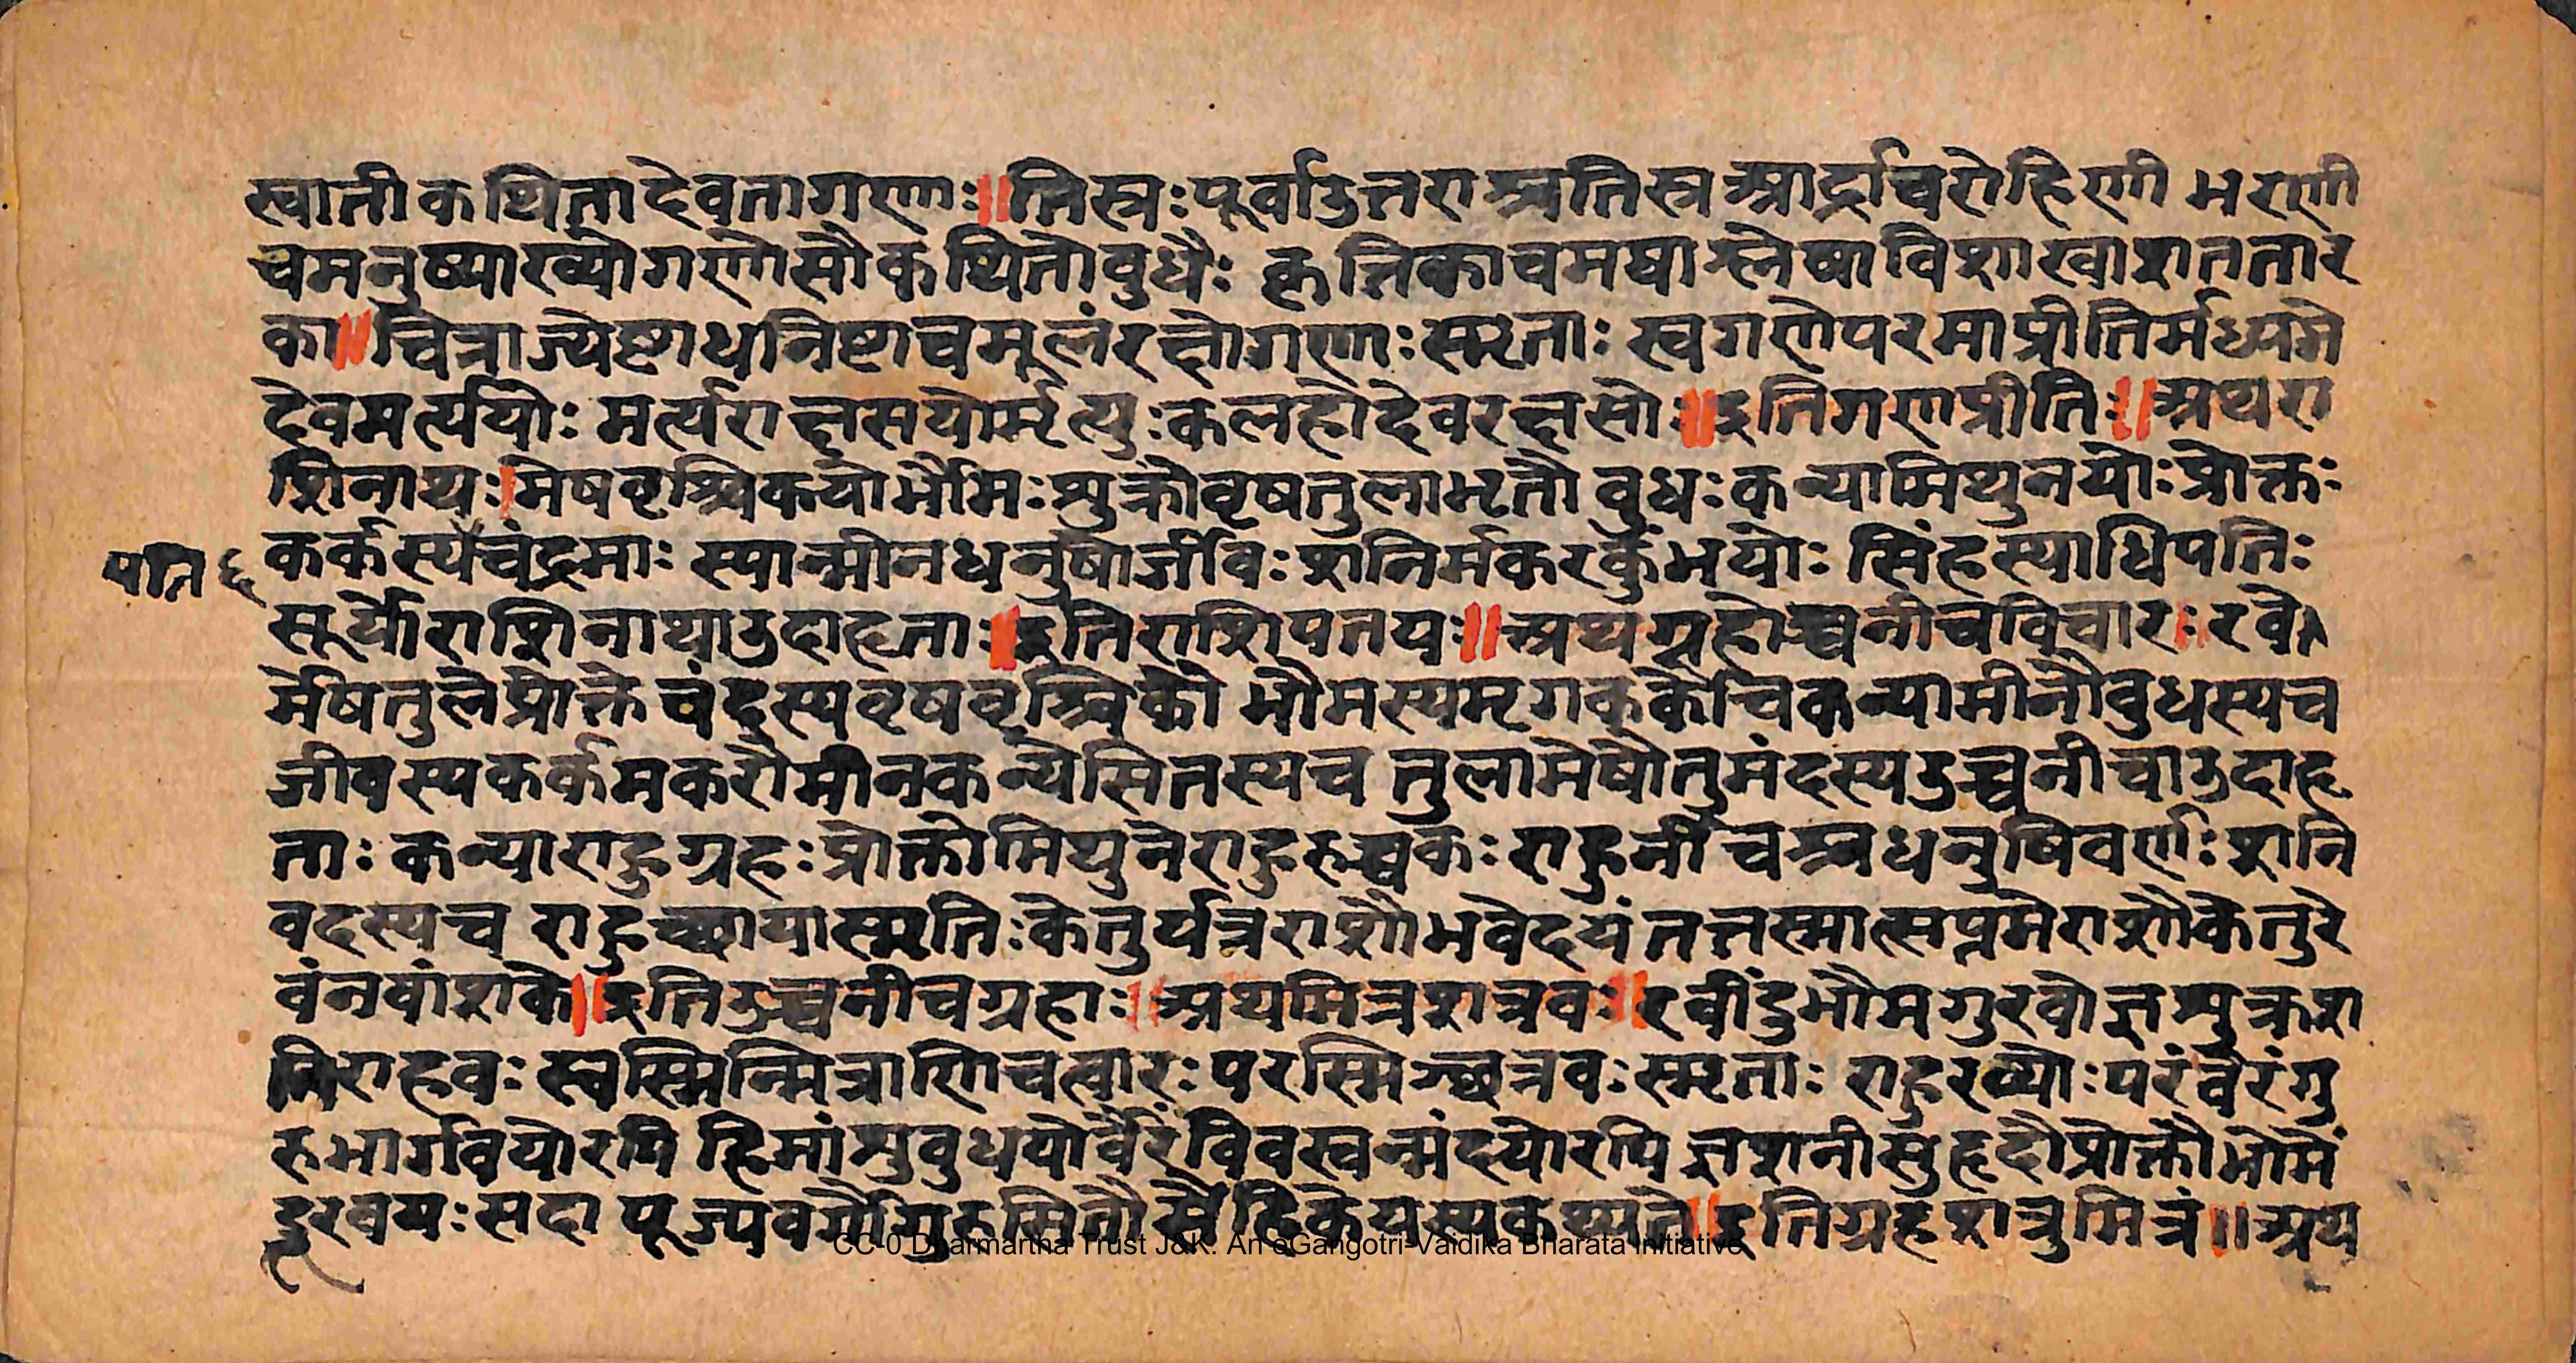 स्वाती कथिता देवतागणः॥ तिस्रः पूर्वाउत्तराश्चतिस्र आर्द्राचरोहिणी भरणी
चमनुष्याख्यो गणोसौ कथितो बुधैः कृत्तिकाचमघाश्लेषाविशाखाशततार
का॥ चित्राज्येष्टाधनिष्टाचमूलंरक्षोगणः स्मृताः स्वगणेपरमाप्रीतिर्मध्यमे
देवमर्त्ययोः मर्त्यराक्षसयोर्मृत्युः कलहोदेवरक्षसोः॥ इतिगणप्रीतिः॥ अथरा
शिनाथः। मेषवृश्चिकयोर्भौमः शुक्रोवृषतुलाभृतो बुधः कन्यामिथुनयोः प्रोक्तः
कर्कस्यचंद्रमाः स्यान्मीनधनुषोर्जीवः शनिर्मकरकुंभयोः सिंहस्याधिपतिः
पति ६
सूर्योराशिनाथाउदाहृताः॥ इतिराशिपतयः॥ अथग्रहोच्चनीचविचारः रवे
र्मेषतुलेप्रोक्ते चंद्रस्यवृषवृश्चिकौ भौमस्यमृगकर्कौच कन्यामीनौबुधस्यच
जीवस्यकर्कमकरौमीनकन्येसितस्यच तुलामेषौतुमंदस्यउच्चनीचाउदाहृ
ताः कन्याराहुग्रहः प्रोक्तोमिथुनेराहुरुच्चकः राहुनीचश्चधनुषिवर्णः शनि
वदस्यच राहुच्छायास्मृतिः केतुर्यत्रराशौभवेदयं तत्तस्मात्सप्तमेराशौकेतुरे
वंनवांशके॥ इतिउच्चनीचग्रहाः॥ अथमित्रशत्रवः॥ रवींदुभौमगुरवोज्ञशुक्रश
निराहवः स्वस्मिन्मित्राणिचत्वारः परस्मिञ्छत्रवः स्मृताः राहुरव्योः परंवैरंगु
रुभार्गवयोरपि हिमांशुबुधयोर्वैरंविवस्वन्मंदयोरपि ज्ञशनीसुहृदौप्रोक्तौभौमें
दूरवयः सदा पूज्यवर्गौगुरुसितौसैंहिकेयस्यकथ्यते॥ इतिग्रहशत्रुमित्रं॥ अथ
CC-0 Dharmartha Trust J&K. An eGangotri-Vaidika Bharata Initiative